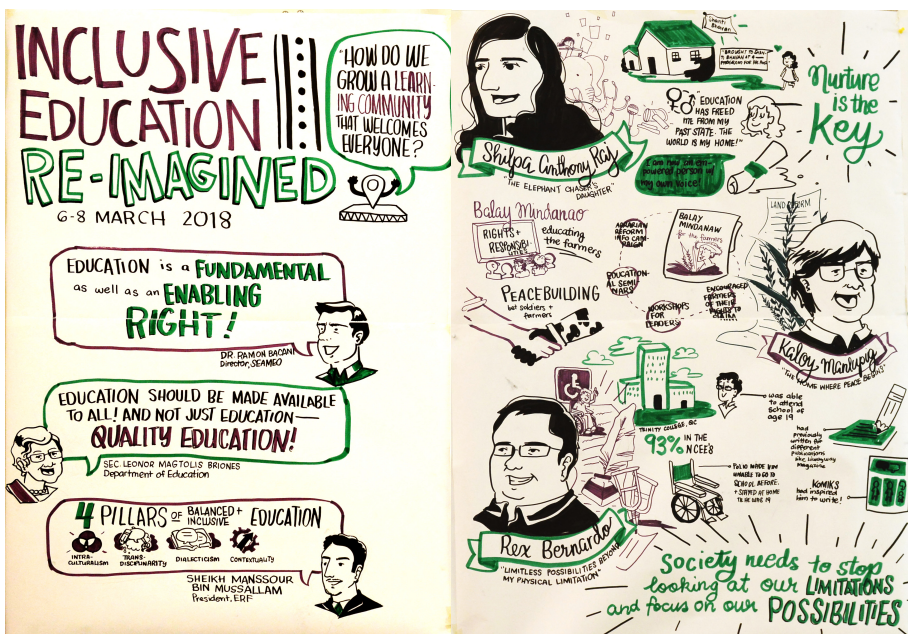 INCLUSIVE
EDUCATION
RE-IMAGINED
6-8 MARCH 2018
"HOW DO WE
GROW A LEARN-
ING COMMUNITY
THAT WELCOMES
EVERYONE?
EDUCATION is a FUNDAMENTAL
as well as an ENABLING
RIGHT!
DR. RAMON BACANI
Director, SEAMEO
EDUCATION SHOULD BE MADE AVAILABLE
TO ALL! AND NOT JUST EDUCATION—
QUALITY EDUCATION!
SEC. LEONOR MAGTOLIS BRIONES
Department of Education
4 PILLARS OF BALANCED + INCLUSIVE EDUCATION
INTRA-
CULTURALISM
TRANS-
DISCIPLINARITY
DIALECTICISM
CONTEXTUALITY
SHEIKH MANSSOUR
BIN MUSSALLAM
President, ERF
Shanti
Bhavan
Shilpa Anthony Raj
"THE ELEPHANT CHASER'S
DAUGHTER"
"EDUCATION
HAS FREED
ME FROM MY
PAST STATE. THE
WORLD IS MY HOME!"
I am now an em-
powered person w/
my own voice!
Nurture
is the
Key
Balay Mindanao
RIGHTS +
RESPONSIBI
LITIES
educating
the farmers
AGRARIAN
REFORM
INFO CAM-
PAIGN
EDUCATION-
AL SEMI-
NARS
WORKSHOPS
FOR
LEADERS
ENCOURAGED
FARMERS
OF THEIR
RIGHTS TO
BALAY
MINDANAW
for the farmers
LAND REFORM
PEACEBUILDING
bet soldiers +
farmers
Kaloy Manlupig
"THE HOME WHERE PEACE BEGINS"
TRINITY COLLEGE, QC
93% IN THE
NCEE'S
was able
to attend
school at
age 19
had
previously
written for
different
publications
like Liwayway
magazine
POLIO MADE HIM
UNABLE TO GO TO
SCHOOL BEFORE.
+ STAYED AT HOME
KOMIKS
had inspired
him to write!
Rex Bernardo
"LIMITLESS POSSIBILITIES BEYOND
MY PHYSICAL LIMITATION"
Society needs to stop
looking at our LIMITATIONS
and focus on our POSSIBILITIES